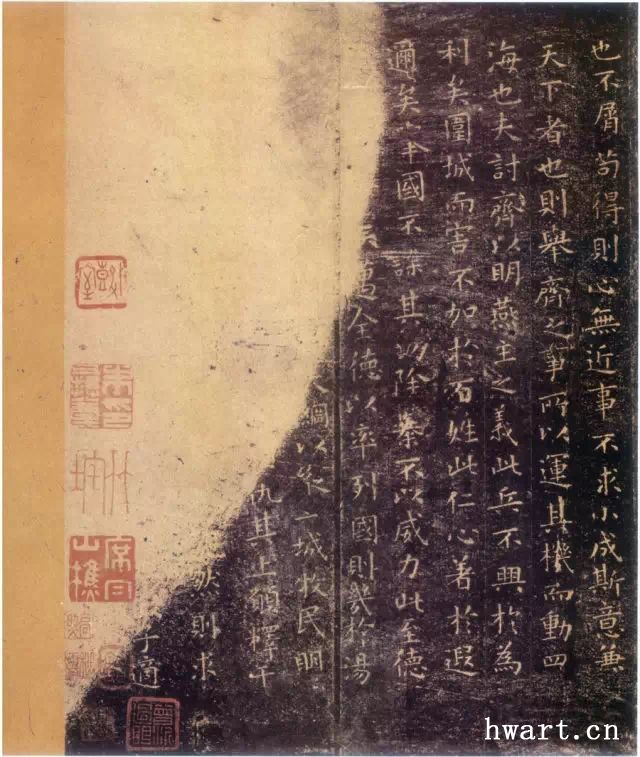 也不屑苟得則心無近事不求小成斯意兼
天下者也則舉齊之事所以運其機而動四
海也夫討齊以明燕主之義此兵不興於為
利矣圍城而害不加於百姓此仁心著於遐
邇矣舉國不謀其功除暴不以威力此至德
矣邁全德以率列國則幾於湯
綱以縱二城牧民明
仇其上願釋干
然則求
子適
hwart.cn